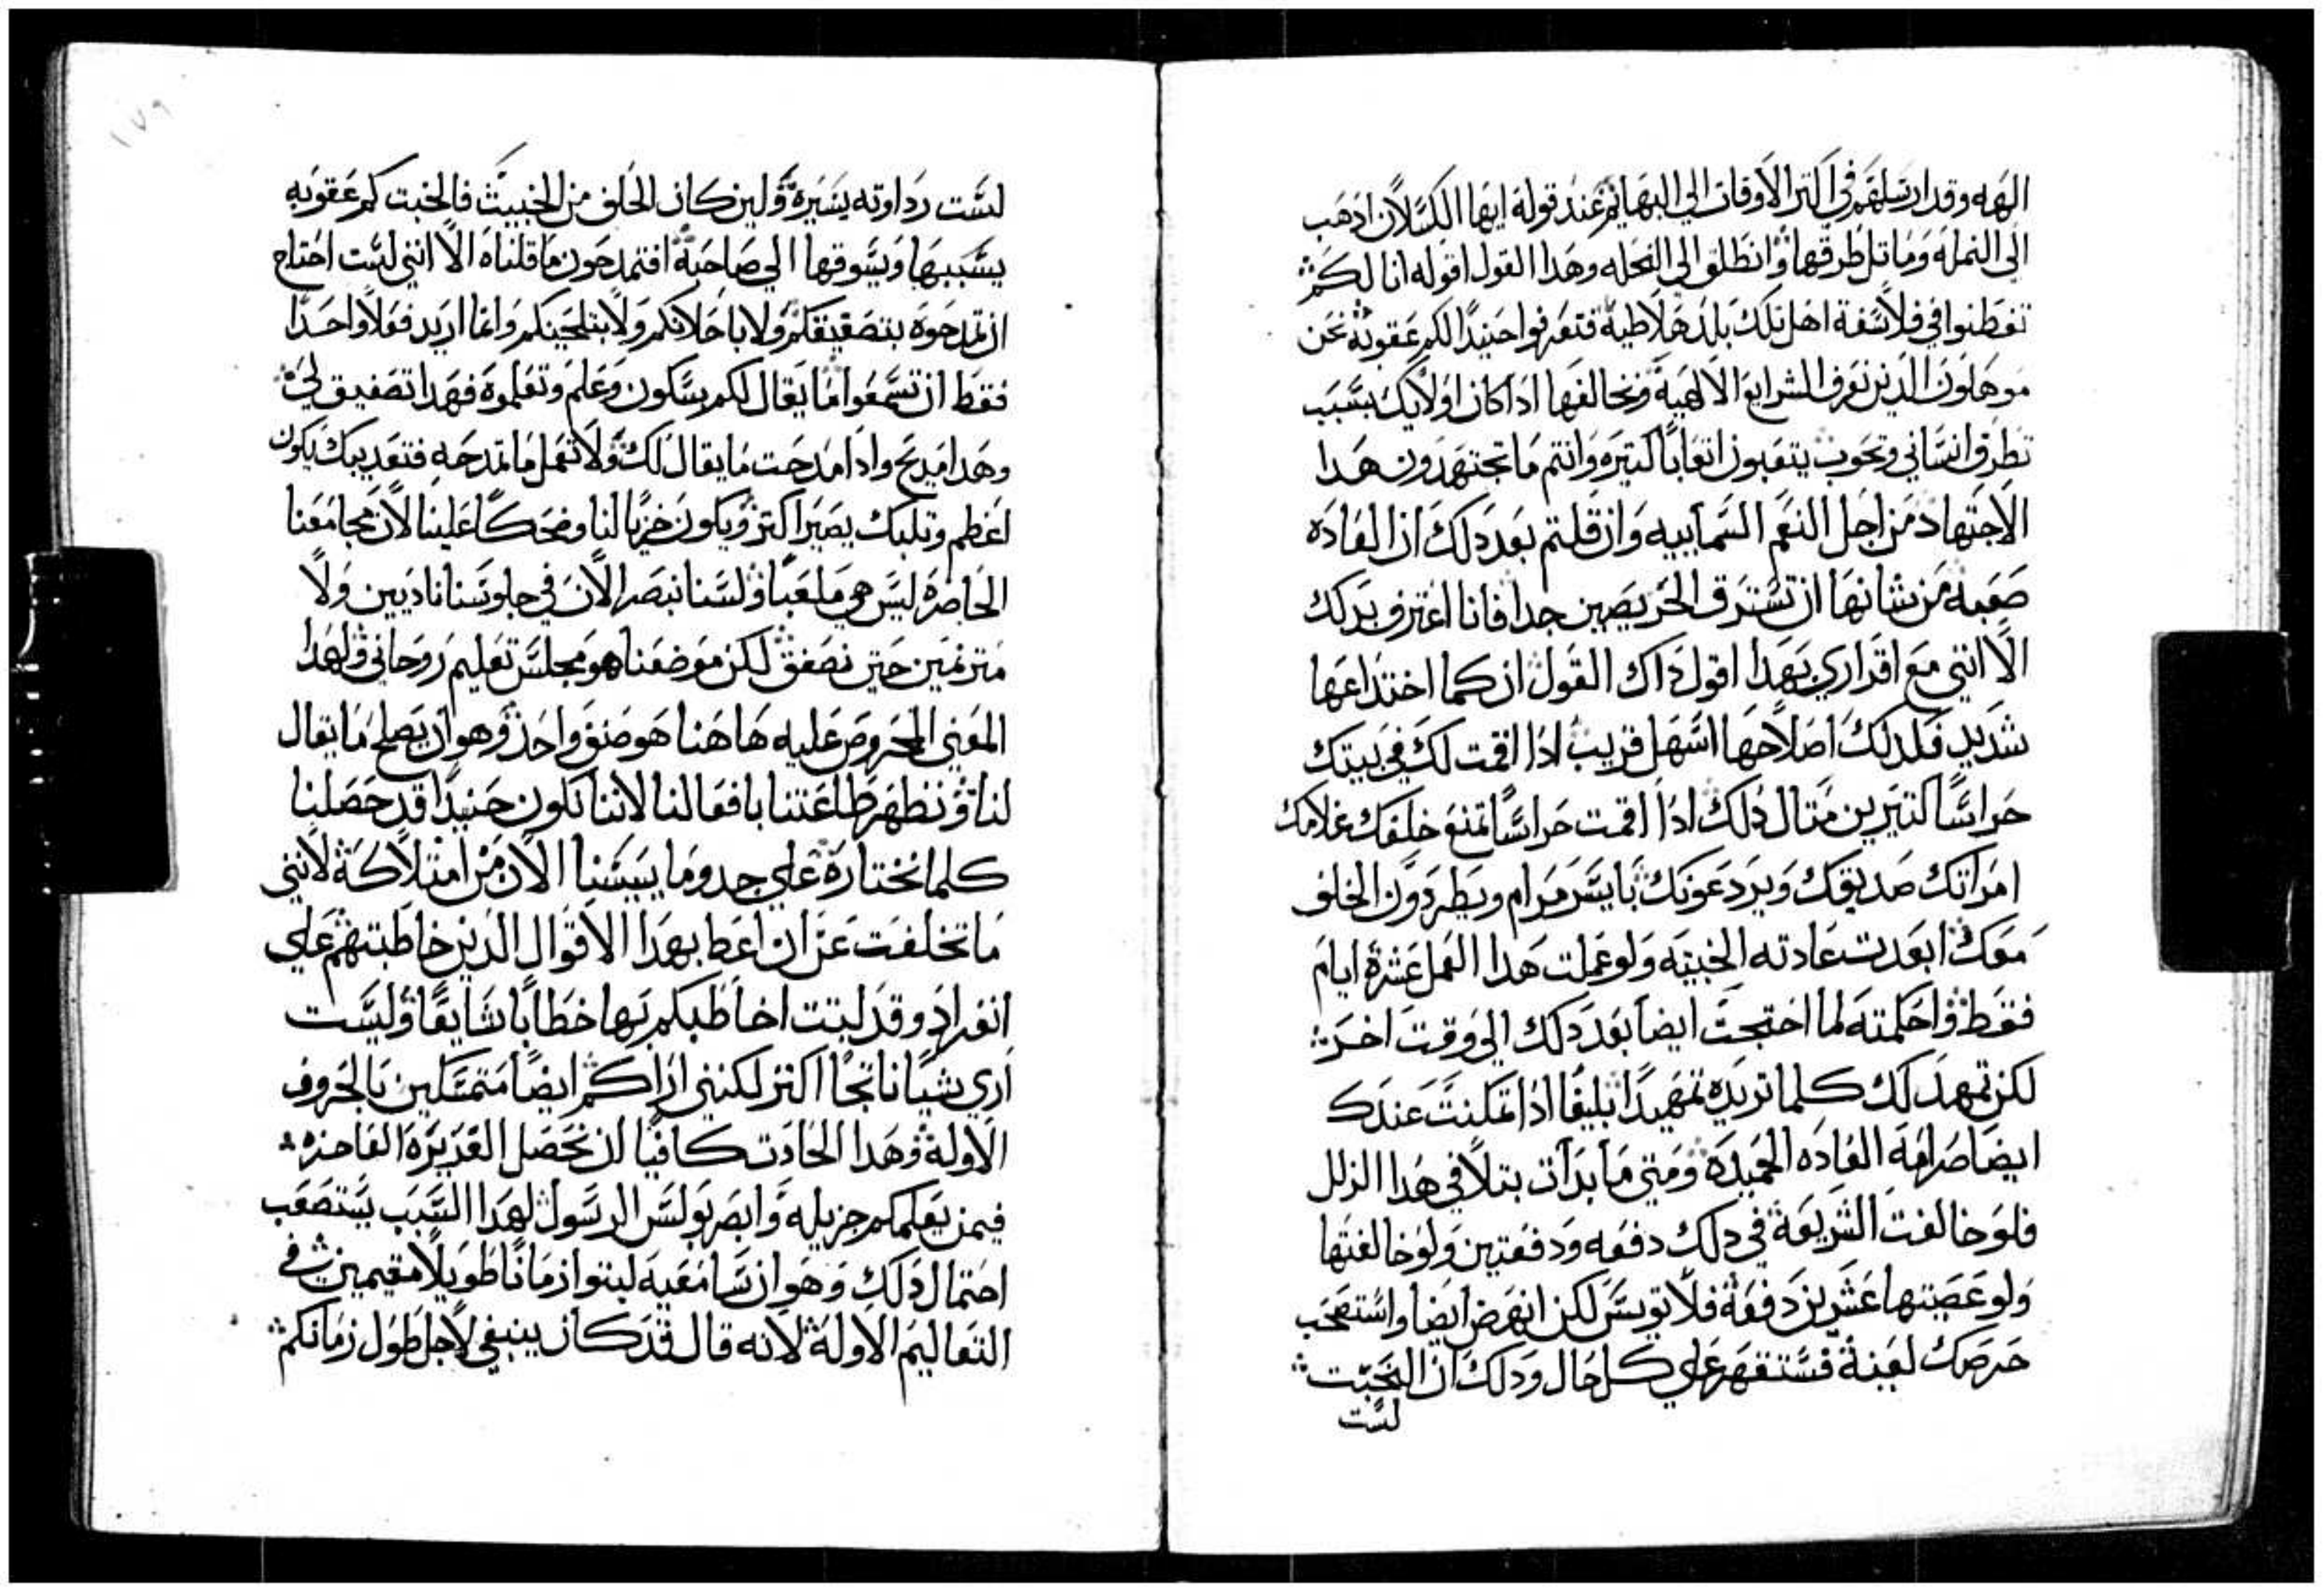 الهه وقد ارسلهم في اكثر الاوقات الي البهايم عند قوله ايها الكسلان اذهب
الى النمله وماتل طرقها وانطلق الى النحله وهدا القول اقوله انا لكم
تفطنوا في فلاسفة اهل تلك بلد هلاطية فتعرفوا حينيدا لكم عقوبة نحن
موهلون الدين نعرف الشرايع الالهية ونخالفها اداكان اولايك بسبب
تطرق انساني وتحوب يتعبون اتعابا كتيره وانتم ما تجتهدون هدا
الاجتهاد من اجل النعم السماييه وان قلتم بعد دلك ان العاده
صعبه من شانها ان تسترق الحريصين جدا فانا اعترف بدلك
الا انني مع اقراري بهدا اقول داك القول ان كما اختداعها
شديد فلدلك اصلاحها اسهل قريب ادا اقمت لك في بيتك
حراسا كتيرين متال دلك ادا اقمت حراسا تمنع خلفك غلامك
امراتك صديقك ويردعونك بايسر مرام ويطردون الحلف
معك ابعدت عادته الخبيته ولو عملت هدا العمل عشرة ايام
فقط واحكمته لما احتجت ايضا بعد دلك الي وقت اخر
لكن تمهد لك كلما تريده تمهيدا بليغا ادا تمكنت عندك
ايضا صرامة العاده الحميدة ومتي ما بدات بتلافي هدا الزلل
فلو خالفت الشريعة في دلك دفعه ودفعتين ولو خالفتها
ولو عصيتها عشرين دفعة فلا تويس لكن انهض ايضا واستصحب
حرصك لعينة فستقهر علي كل حال ودلك ان التحبت
لست
١٧٩
لست رداوته يسيرة ولين كان الحلف من الخبيث فالخبت كم عقوبه
يسببها ويسوقها الي صاحبة افتمدحون ما قلناه الا انني لست احتاج
ان تمدحوه بتصفيقكم ولا باجلابكم ولا بتلجينكم وانما اريد فعلا واحدا
فقط ان تسمعوا ما يقال لكم بسكون وعلم وتعلموة فهدا تصفيق لي
وهدا مديح وادا مدحت ما يقال لك ولا تعمل ما تمدحه فتعديبك يكون
اعظم وتلبك يصير اكتر ويكون خزيا لنا وضحكا علينا لان مجامعنا
الحاضرة ليس هي ملعبا ولسنا نبصر الان في جلوسنا ناديين ولا
مترنمين حتي نصفق لكن موضعنا هو مجلس تعليم روحاني ولهدا
المعني المحروص عليه هاهنا هو صنف واحد وهو ان يصلح ما يقال
لنا ونظهر طاعتنا بافعالنا لاننا نكون حنيدا قد حصلنا
كلما نختارة علي جد وما يبيسنا الان من امتلاكة لانني
ما تخلفت عن ان اعظ بهدا الاقوال الدين خاطبتهم علي
انفراد وقد لبتت اخاطبكم بها خطابا شايعا وليست
اري شيا ناتجا اكتر لكنني اراكم ايضا متمسكين بالحروف
الاولة وهدا الحادت كافيا ان نحصل القديرة الفاحزة
فيمن يعلمكم جزيله وابصر بولس الرسول لهدا السبب يستصعب
احتمال دلك وهو ان سامعيه لبتوا زمانا طويلا مقيمين في
التعاليم الاولة لانه قال قد كان ينبغي لاجل طول زمانكم